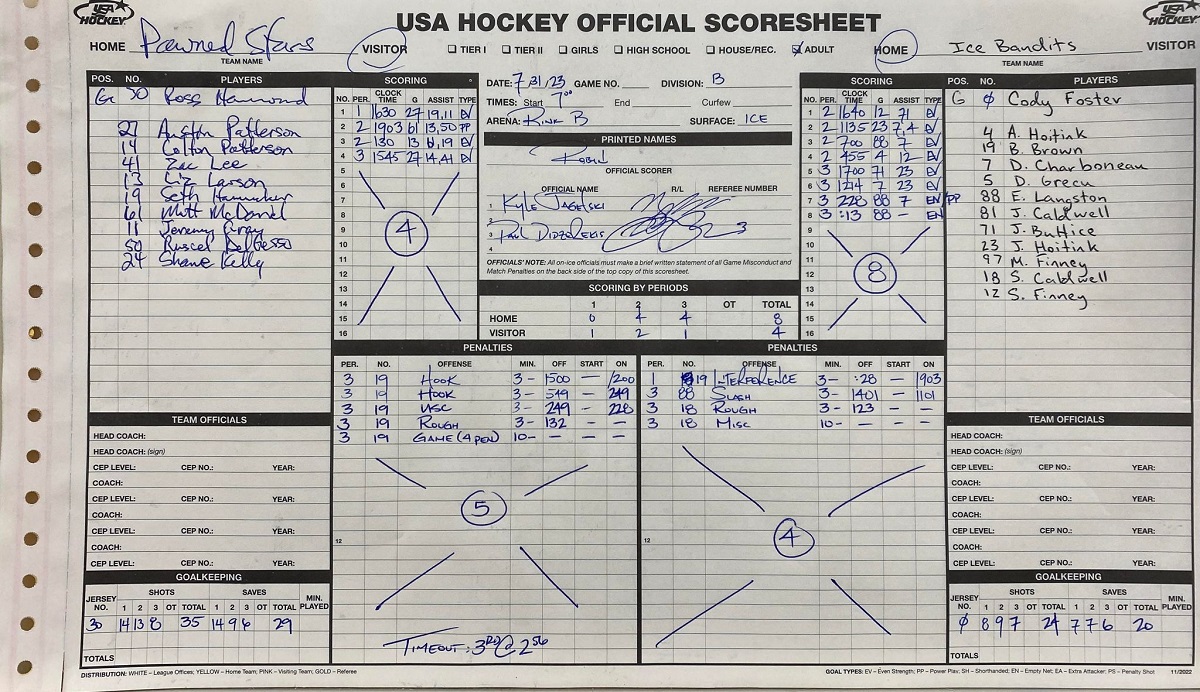 USA HOCKEY
USA HOCKEY OFFICIAL SCORESHEET
USA HOCKEY
HOME Pawned Stars VISITOR
TEAM NAME
☐ TIER I ☐ TIER II ☐ GIRLS ☐ HIGH SCHOOL ☐ HOUSE/REC. ☑ ADULT
HOME Ice Bandits VISITOR
TEAM NAME
POS. NO. PLAYERS
G 30 Ross Hammond
27 Austin Patterson
14 Colton Patterson
41 Zac Lee
13 Liz Larson
19 Seth
61 Matt McDaniel
11 Jeremy Gray
50 Ruscel
24 Shane Kelly
SCORING
NO. PER. CLOCK TIME G ASSIST TYPE
1 1 1630 27 19,11 EV
2 2 1903 61 13,50 PP
3 2 130 13 11,19 EV
4 3 1545 27 14,41 EV
5
6
7
8
9
10
11
12
13
14
15
16
4
DATE: 7/31/23 GAME NO. DIVISION: B
TIMES: Start 7:00 End Curfew
ARENA: Rink B SURFACE: ICE
PRINTED NAMES
Robin
OFFICIAL SCORER
OFFICIAL NAME R/L REFEREE NUMBER
1 Kyle Jagelski
2
3 Paul
4
OFFICIALS' NOTE: All on-ice officials must make a brief written statement of all Game Misconduct and
Match Penalties on the back side of the top copy of this scoresheet.
SCORING BY PERIODS
1 2 3 OT TOTAL
HOME 0 4 4 8
VISITOR 1 2 1 4
SCORING
NO. PER. CLOCK TIME G ASSIST TYPE
1 2 1640 12 71 EV
2 2 1135 23 7,4 EV
3 2 700 88 7 EV
4 2 455 4 12 EV
5 3 1700 71 23 EV
6 3 1214 7 23 EV
7 3 228 88 7 EN PP
8 3 :13 88 – EN
9
10
11
12
13
14
15
16
8
POS. NO. PLAYERS
G ∅ Cody Foster
4 A. Hoitink
19 B. Brown
7 D. Charboneau
5 D. Grecu
88 E. Langston
81 J. Caldwell
71 J. Buttice
23 J. Hoitink
97 M. Finney
18 S. Caldwell
12 S. Finney
PENALTIES
PER. NO. OFFENSE MIN. OFF START ON
3 19 Hook 3– 1500 – 1200
3 19 Hook 3– 549 – 249
3 19 USC 3– 249 – 228
3 19 Rough 3– 132 – –
3 19 Game (4 pen) 10– – – –
12
5
Timeout: 3RD @ 2:56
PENALTIES
PER. NO. OFFENSE MIN. OFF START ON
1 19 Interference 3– :28 – 1903
3 88 Slash 3– 1401 – 1101
3 18 Rough 3– 123 – –
3 18 Misc 10– – – –
12
4
TEAM OFFICIALS
HEAD COACH:
HEAD COACH: (sign)
CEP LEVEL: CEP NO.: YEAR:
COACH:
CEP LEVEL: CEP NO.: YEAR:
COACH:
CEP LEVEL: CEP NO.: YEAR:
COACH:
CEP LEVEL: CEP NO.: YEAR:
GOALKEEPING
JERSEY NO. SHOTS 1 2 3 OT TOTAL SAVES 1 2 3 OT TOTAL MIN. PLAYED
30 14 13 8 35 14 9 6 29
TOTALS
TEAM OFFICIALS
HEAD COACH:
HEAD COACH: (sign)
CEP LEVEL: CEP NO.: YEAR:
COACH:
CEP LEVEL: CEP NO.: YEAR:
COACH:
CEP LEVEL: CEP NO.: YEAR:
COACH:
CEP LEVEL: CEP NO.: YEAR:
GOALKEEPING
JERSEY NO. SHOTS 1 2 3 OT TOTAL SAVES 1 2 3 OT TOTAL MIN. PLAYED
∅ 8 9 7 24 7 7 6 20
TOTALS
DISTRIBUTION: WHITE – League Offices; YELLOW – Home Team; PINK – Visiting Team; GOLD – Referee
GOAL TYPES: EV – Even Strength; PP – Power Play; SH – Shorthanded; EN – Empty Net; EA – Extra Attacker; PS – Penalty Shot 11/2022